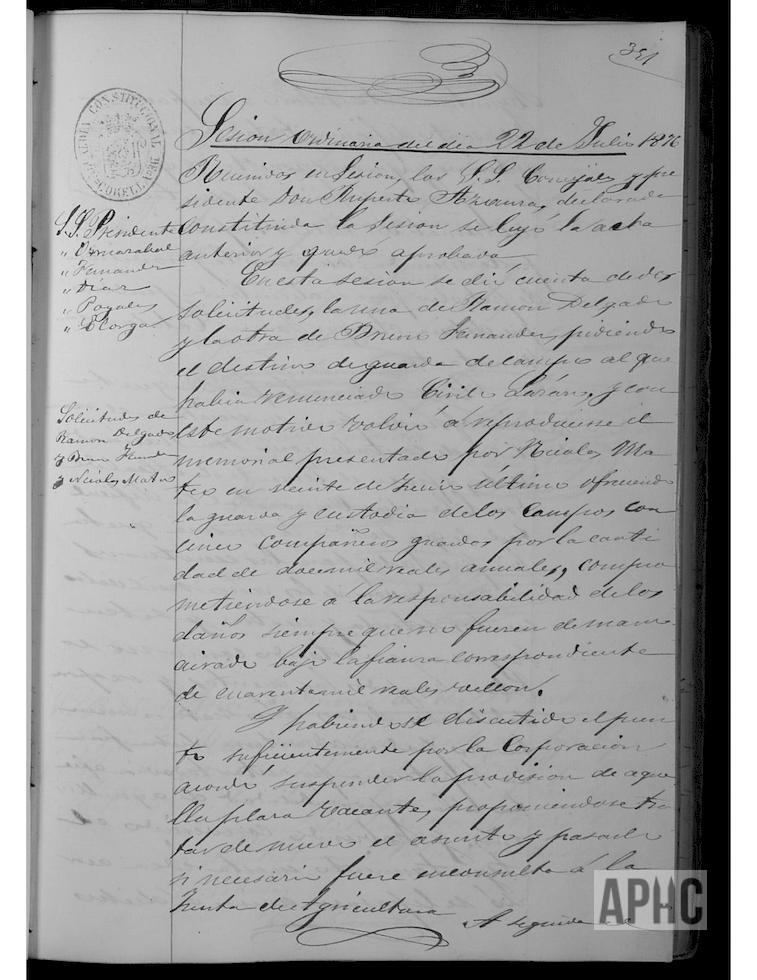 351
Sesion Ordinaria del dia 22 de Julio 1876
Reunidos en Sesion, los S.S. Concejales y pre
sidente Don Ruperto declarada
Constituida la Sesion se leyó la acta
anterior y quedó aprobada
En esta sesion se dió cuenta de dos
solicitudes, la una de Ramon Delgado
y la otra de Bruno Fernandez, pidiendo
el destino de guarda de campo al que
habia renunciado Cirilo y con
este motivo volvió á reproducirse el
memorial presentado por Nicolas Ma
teo en veinte de Junio último ofreciendo
la guarda y custodia de los Campos con
cinco compañeros guardas por la canti
dad de doce mil reales anuales, compro
metiendose a la responsabilidad de los
daños siempre que no fueren de mano
airada bajo la fianza correspondiente
de cuarenta mil reales vellon.
Y habiendose discutido el pun
to suficientemente por la Corporacion
acordó suspender la provision de aque
lla plaza vacante, proponiendose tra
tar de nuevo el asunto y pasarlo
si necesario fuere en consulta á la
Junta de Agricultura
A seguida
S.S. Presidente
" Fernandez
" Diaz
" Poyales
" Elorga
Solicitudes de
Ramon Delgado
y Bruno Fernandez
y Nicolas Mateo
ALCALDIA CONSTITUCIONAL DE
CORELLA
APHC